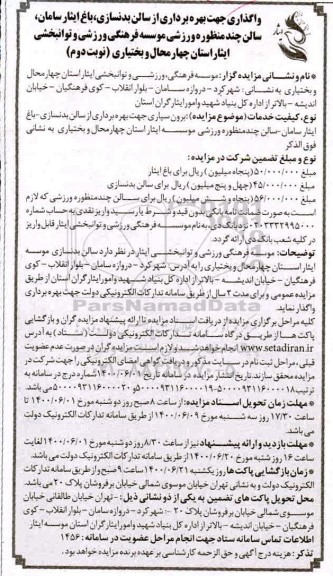 واگذاری جهت بهره برداری از سالن بدنسازی، باغ ایثار سامان،
سالن چند منظوره ورزشی موسسه فرهنگی ورزشی و توانبخشی
ایثار استان چهارمحال و بختیاری (نوبت دوم)
* نام و نشانی مزایده گزار: موسسه فرهنگی، ورزشی و توانبخشی ایثار استان چهارمحال
و بختیاری به نشانی: شهرکرد - دروازه سامان - بلوار انقلاب - کوی فرهنگیان - خیابان
اندیشه - بالاتر از اداره کل بنیاد شهید و امور ایثارگران استان
نوع، کیفیت خدمات (موضوع مزایده): برون سپاری جهت بهره برداری از سالن بدنسازی - باغ
ایثار سامان - سالن چندمنظوره ورزشی موسسه ایثار استان چهارمحال و بختیاری به نشانی
فوق الذکر
نوع و مبلغ تضمین شرکت در مزایده:
مبلغ ۵۰/۰۰۰/۰۰۰ (پنجاه میلیون) ریال برای باغ ایثار
مبلغ ۴۵/۰۰۰/۰۰۰ (چهل و پنج میلیون) ریال برای سالن بدنسازی
مبلغ ۵۶/۰۰۰/۰۰۰ (پنجاه و شش میلیون) ریال برای سالن چندمنظوره ورزشی که لازم
است به صورت ضمانت نامه بانکی بدون قید و شرط یا رسید واریز نقدی به حساب شماره
نزد بانک دی به نام موسسه فرهنگی ورزشی و توانبخشی ایثار قابل واریز
در کلیه شعب بانک دی ارائه گردد.
توضیحات: موسسه فرهنگی ورزشی و توانبخشی ایثار در نظر دارد سالن بدنسازی موسسه
ایثار استان چهارمحال و بختیاری را به آدرس: شهرکرد - دروازه سامان - بلوار انقلاب - کوی
فرهنگیان - خیابان اندیشه - بالاتر از اداره کل بنیاد شهید و امور ایثارگران استان از طریق
مزایده عمومی و برای مدت ۲ سال از طریق سامانه تدارکات الکترونیکی دولت جهت بهره برداری
واگذار نماید.
کلیه مراحل برگزاری مزایده از دریافت اسناد مزایده تا ارائه پیشنهاد مزایده گران و بازگشایی
پاکت ها از طریق درگاه سامانه تدارکات الکترونیکی دولت (ستاد) به آدرس
www.setadiran.ir انجام خواهد شد و لازم است مزایده گران در صورت عدم عضویت
قبلی، مراحل ثبت نام در سایت مذکور و دریافت گواهی امضای الکترونیکی را جهت شرکت در
مزایده محقق سازند. تاریخ انتشار مزایده در سامانه تاریخ ۱۴۰۰/۰۶/۰۱ شماره درج در سامانه به
می باشد.
* مهلت زمان تحویل اسناد مزایده: از ساعت ۸ صبح روز دوشنبه مورخ ۱۴۰۰/۰۶/۰۱ تا
ساعت ۱۷/۳۰ روز سه شنبه مورخ ۱۴۰۰/۰۶/۰۹ از طریق سامانه تدارکات الکترونیک دولت
می باشد.
* مهلت بازدید و ارائه پیشنهاد نیز از ساعت ۸/۳۰ روز دوشنبه مورخ ۱۴۰۰/۰۶/۰۱ لغایت
ساعت ۱۶ روز شنبه مورخ ۱۴۰۰/۰۶/۲۰ از طریق سامانه تدارکات الکترونیک دولت می باشد.
* زمان بازگشایی پاکت ها روز یکشنبه ۱۴۰۰/۰۶/۲۱ ساعت ۹ صبح و از طریق سامانه تدارکات
الکترونیک دولت و به نشانی تهران خیابان موسوی شمالی خیابان برفروشان پلاک ۲۰ می باشد.
محل تحویل پاکت های تضمین به یکی از دو نشانی ذیل: - تهران - خیابان طالقانی خیابان
موسوی شمالی خیابان برفروشان پلاک ۲۰ - شهرکرد - دروازه سامان - بلوار انقلاب - کوی
فرهنگیان - خیابان اندیشه - بالاتر از اداره کل بنیاد شهید و امور ایثارگران استان موسسه ایثار
اطلاعات تماس سامانه ستاد جهت انجام مراحل عضویت در سامانه: ۱۴۵۶
تذکر: هزینه درج آگهی و حق الزحمه کارشناسی بر عهده برنده مزایده خواهد بود.
ParsNamadData